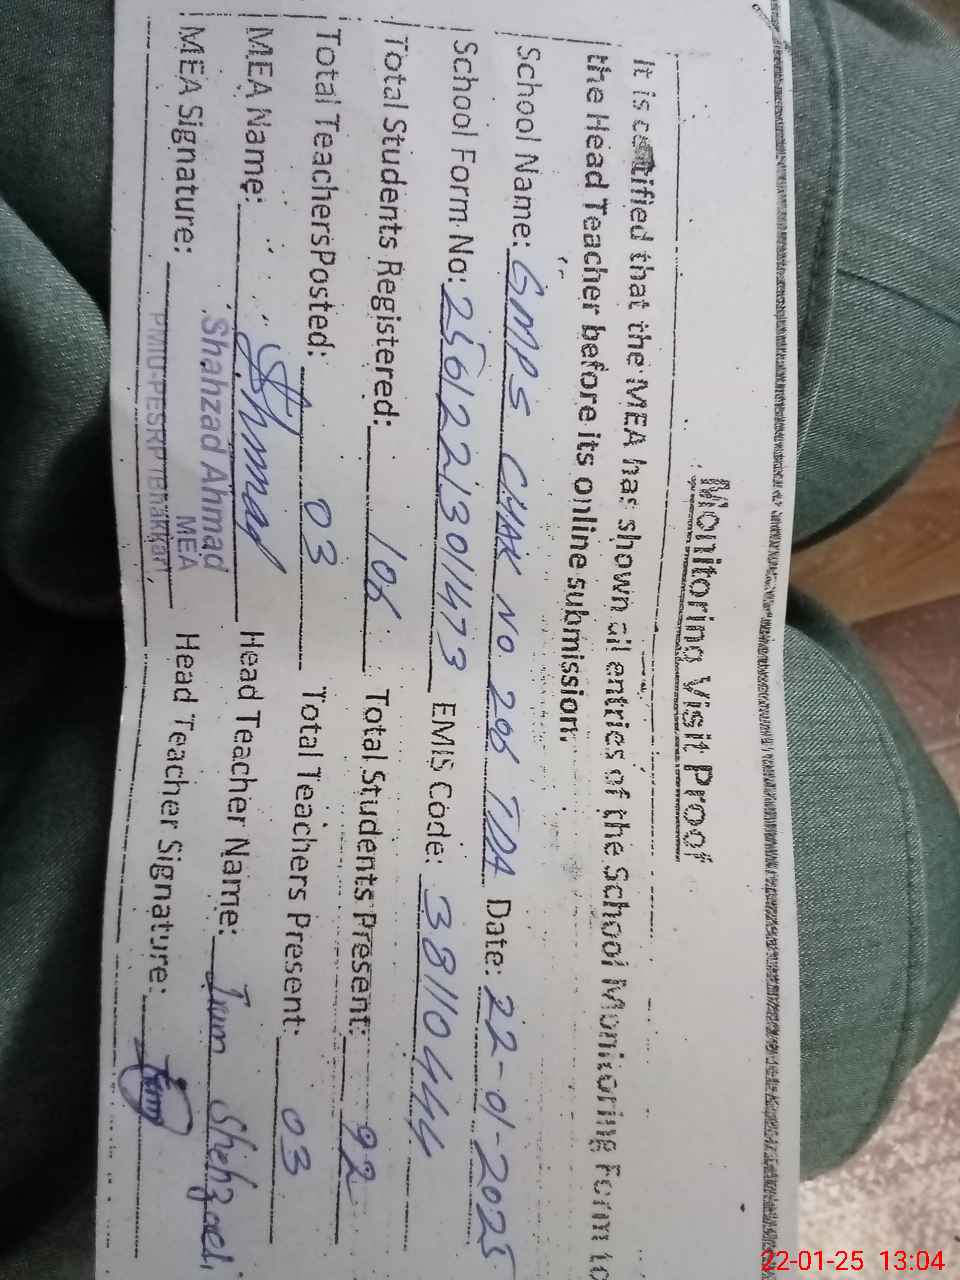 Monitoring Visit Proof
It is certified that the MEA has shown all entries of the School Monitoring Form to
the Head Teacher before its online submission.
School Name: GMPS CHAK NO 296 TDA Date: 22-01-2025
School Form No: 25612213011473 EMIS Code: 38110444
Total Students Registered: 106 Total Students Present: 92
Total Teachers Posted: 03 Total Teachers Present: 03
MEA Name: Ahmad Head Teacher Name: Irum Shehzadi
Shahzad Ahmad
MEA
MEA Signature: Head Teacher Signature: Irum
PMIU-PESRP
22-01-25 13:04